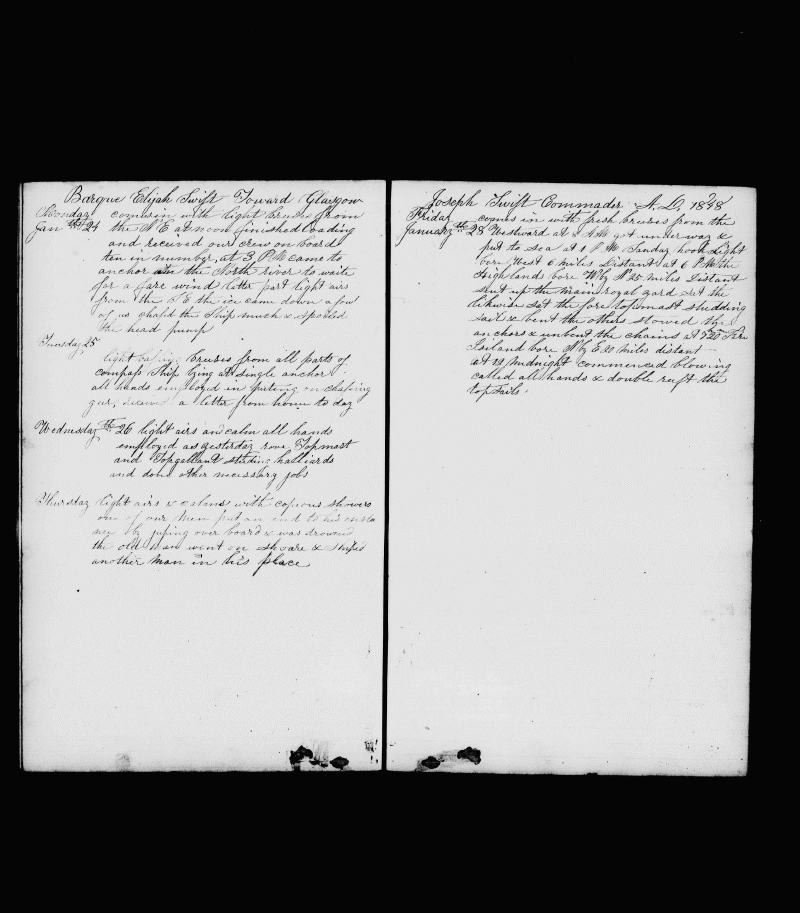 Barque Elijah Swift Toward Glasgow
Monday comsin with light breeses from
Jan th 24 the N E at noon finished loading
and received our crew on board
ten in number, at 3 P M came to
anchor in the North river to waite
for a fare wind latter part light airs
from the S E the ice came down a fow
of us chafd the Ship much & spoiled
the head pump
Tuesday 25
light breeses from all parts of
compass Ship lying at single anchor
all hands employed in puting on chafing
gear, a letter from home to day
Wednesday th 26 light airs an calm all hands
employd as yesterday rove Topmast
and Topgellant studing halliards
and done other necessary jobs
Thursday light airs & calms with copious showers
one of our men put an end to his exista
nce by juping over board & was drowned
the old man went on shoare & shiped
another man in his place
Joseph Swift Commader A. D, 1848
Friday comes in with fresh breeses from the
January th 28 Westward at A M got under way &
put to sea at 1 P M Sanday hook Light
bore West 6 miles Distant at 6 P M the
Highlands bore W by N 25 miles Distant
sent up the main royal yard set the
likewise set the fore topmast studding
sail & bent the others stowed the
anchors & unbent the chains at Fire
Island bore N by E 20 miles distant
at 12 Midnight commenced blowing
called all hands & double reeft the
topsails.